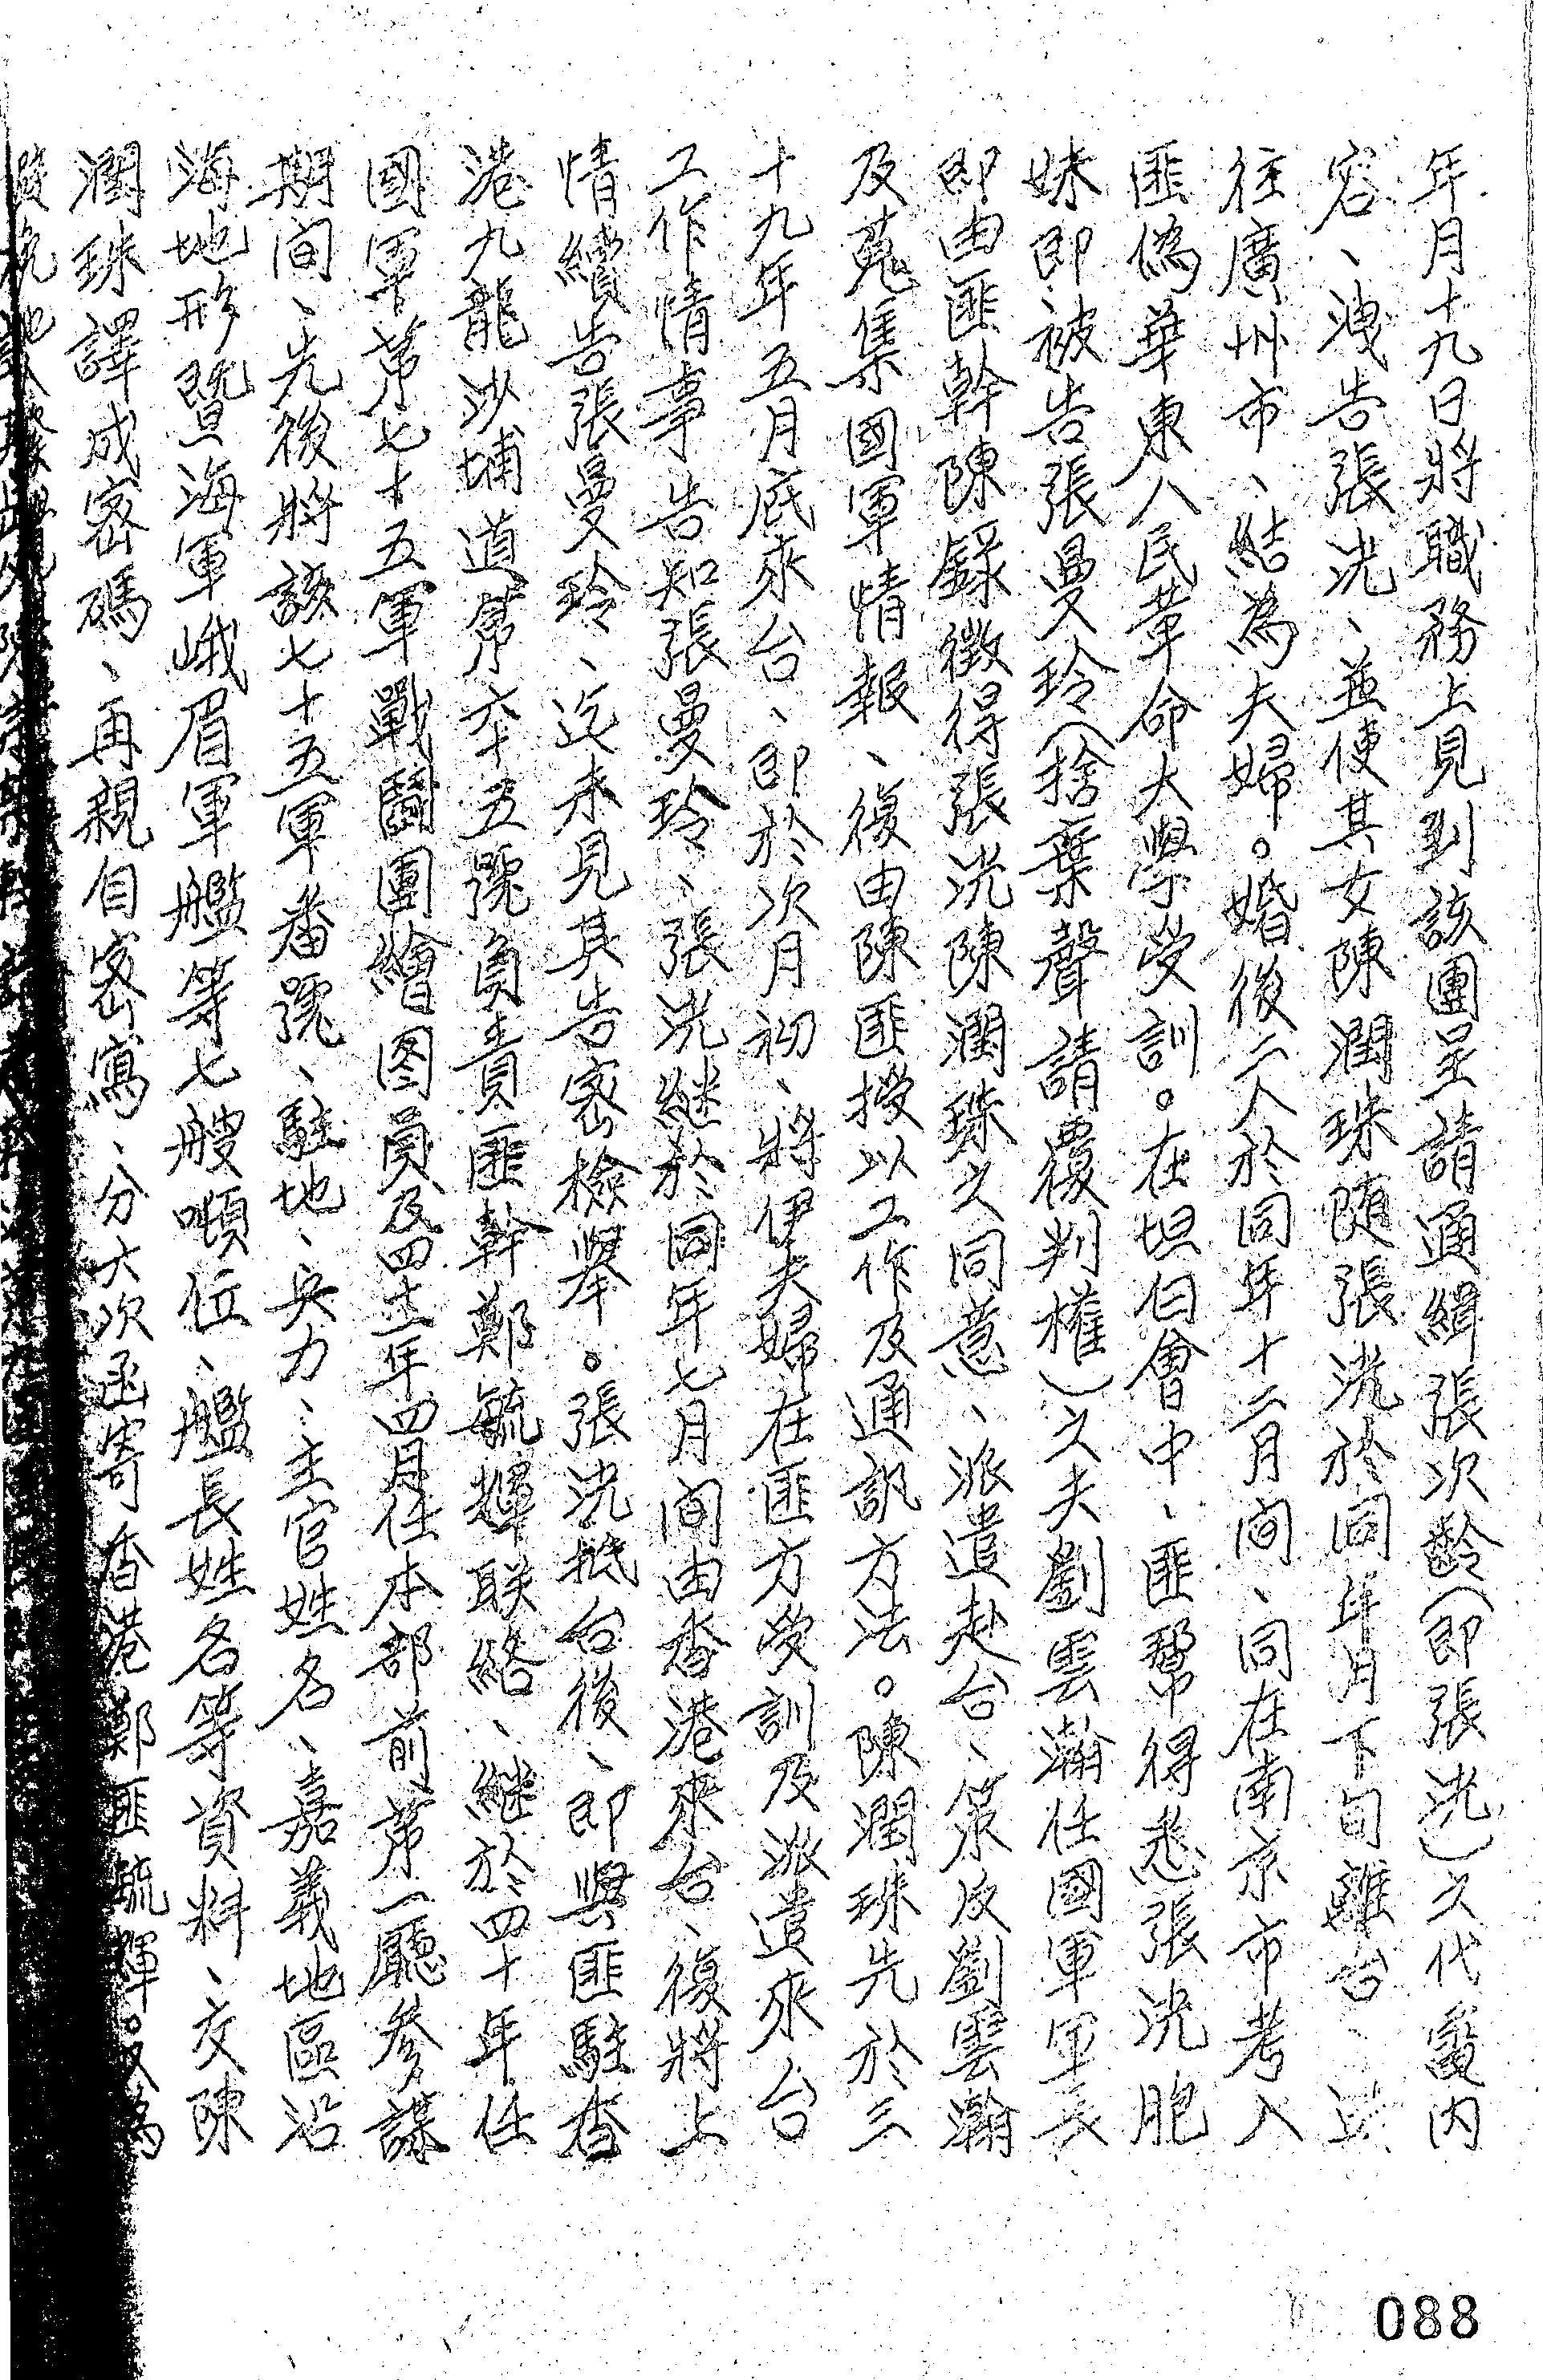 年月十九日將職務上見到該團呈請通緝張次齡(即張洸)之代電內
容、洩告張洸、並使其女陳潤珠隨張洸於同年月下旬離台、
往廣州市、結為夫婦。婚後二人於同年十二月间、同在南京市考入
匪偽華東人民革命大學受訓。在坦白會中、匪幫得悉張洸胞
妹即被告張曼玲(捨棄聲請覆判權)之夫劉雲瀚任國軍軍長
即由匪幹陳錄徵得張洸陳潤珠之同意、派遣赴台、策反劉雲瀚
及蒐集國軍情報、復由陳匪授以工作及通訊方法。陳潤珠先於三
十九年五月底來台、即於次月初、將伊夫婦在匪方受訓及派遣來台
工作情事告知張曼玲、張洸继於同年七月间由香港來台、復將上
情續告張曼玲、迄未見其告密檢舉。張洸抵台後、即與匪駐香
港九龍沙埔道第六十五號負責匪幹鄭毓輝联絡、継於四十年任
國軍第七十五軍戰鬪團繪图員及四十一年四月任本部前第一廳參謀
期间、先後將該七十五軍番號、駐地、兵力、主官姓名、嘉義地區沿
海地形暨海軍峨眉軍艦等七艘噸位、艦長姓名等資料、交陳
潤珠譯成密碼、再親自密寫、分六次函寄香港鄭匪毓輝。又為
088